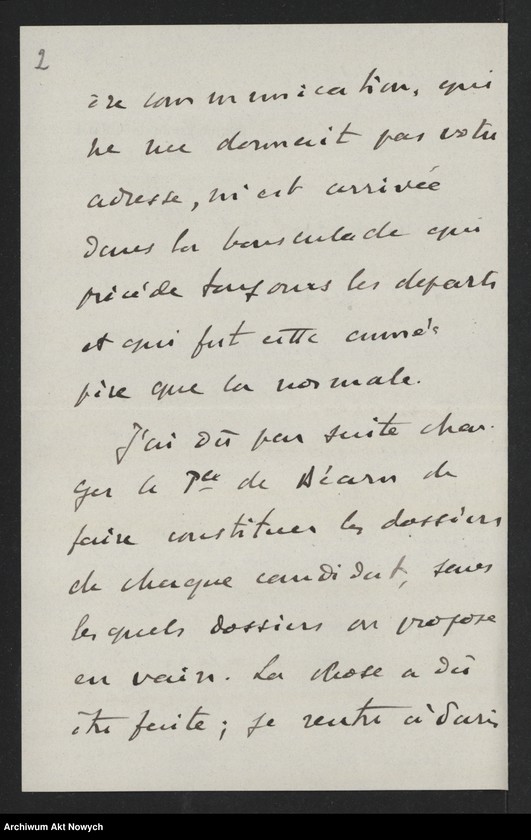 2
ère communication, qui
ne me donnait pas votre
adresse, m'est arrivée
dans la bousculade qui
précède toujours les départs
et qui fut cette année
pire que la normale.
J'ai dû par suite char-
ger le Pce de Béarn de
faire constituer les dossiers
de chaque candidat, sans
lesquels dossiers on propose
en vain. La chose a dû
être faite ; je rentre à Paris
Archiwum Akt Nowych